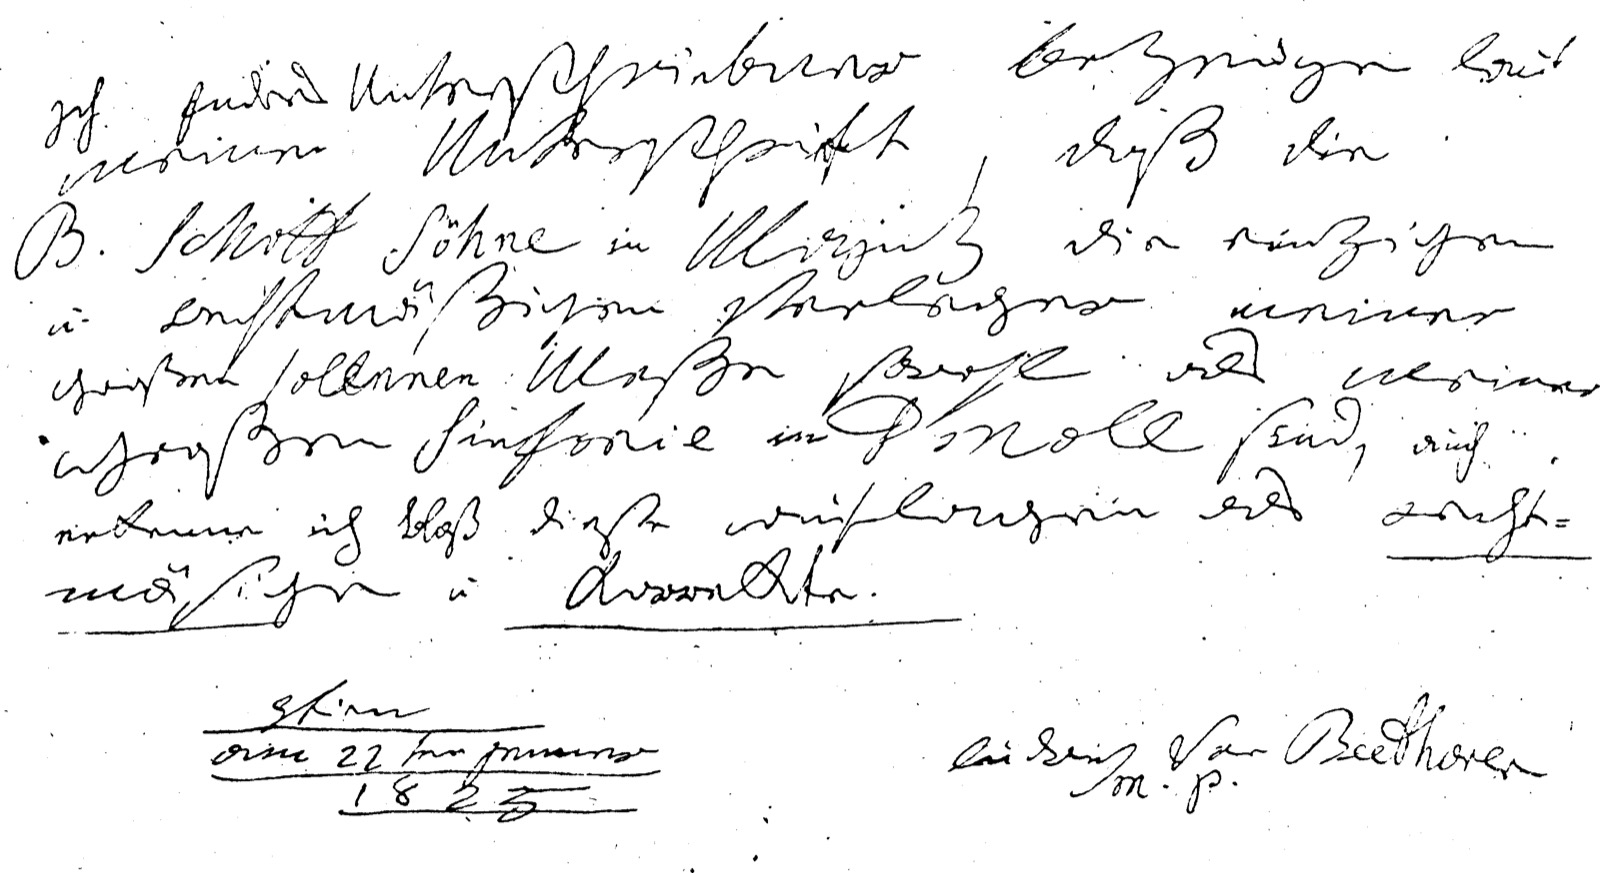 Ich Endes Unterschriebener bezeuge laut
meiner Unterschrift, daß die
B. Schott Söhne in Maÿntz die eintzigen
u. rechtmäßigen Verleger meiner
großen solennen Meße sowohl als meiner
großen Sinfonie in D moll sind, auch
erkenne ich bloß diese auflagen als recht=
mäßige u Correckte.
Wien
am 22ten jenner
1825
ludwig van Beethoven
m. p.